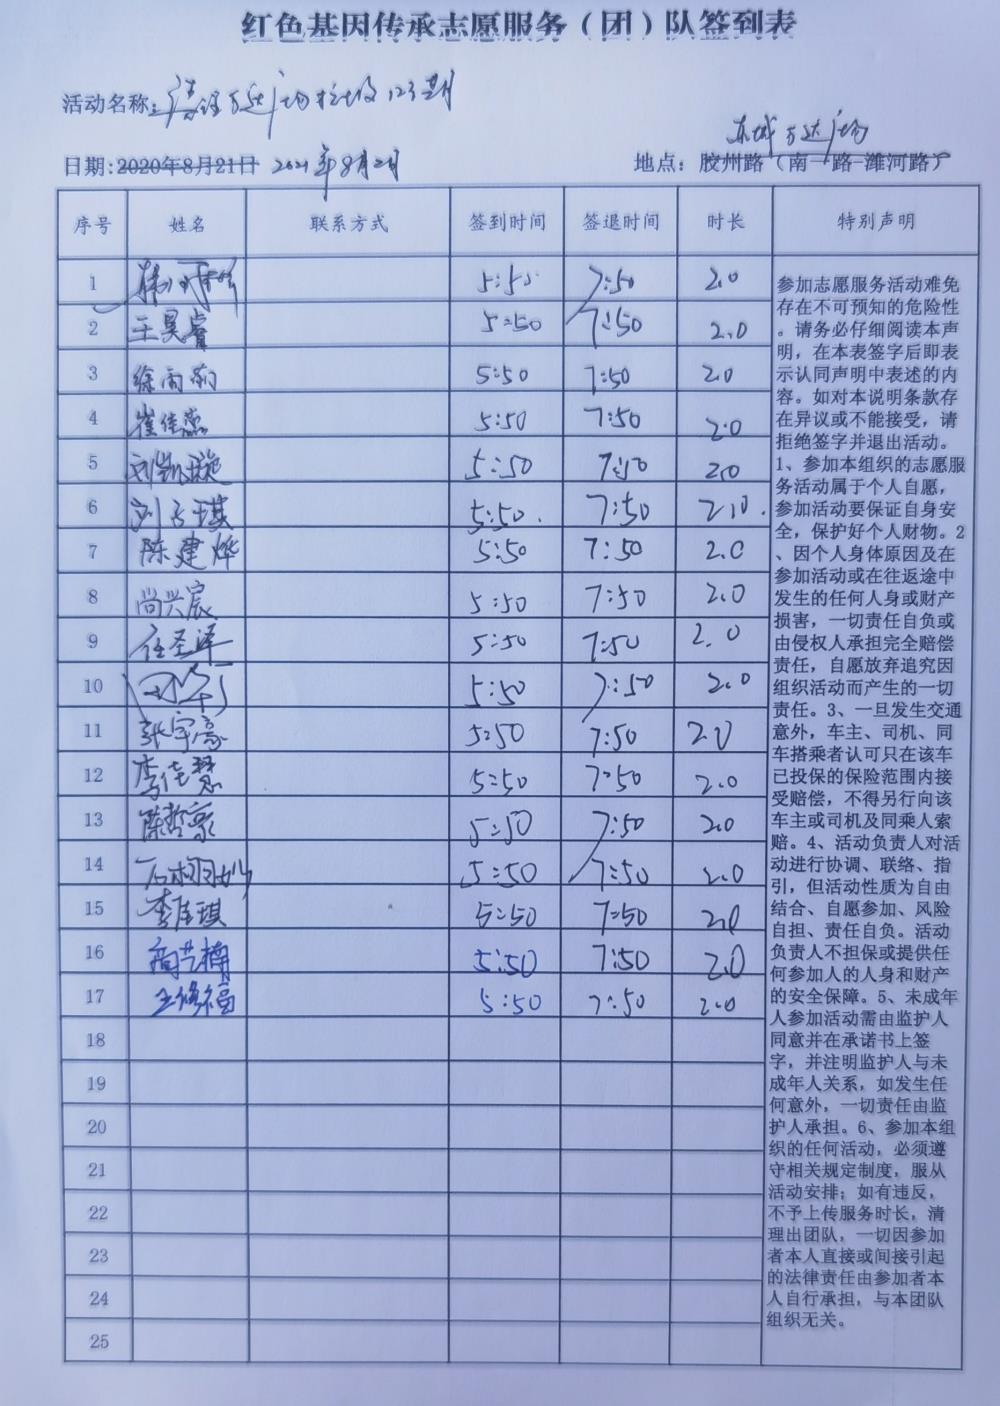 红色基因传承志愿服务（团）队签到表
活动名称: 万达广场垃圾 123期
东城万达广场
日期:2020年8月21日 2021年8月2日 地点: 胶州路（南一路-潍河路）
序号 姓名 联系方式 签到时间 签退时间 时长 特别声明
1 5:50 7:50 2.0
2 王昊睿 5:50 7:50 2.0
3 徐雨萌 5:50 7:50 2.0
4 崔佳燕 5:50 7:50 2.0
5 刘凯璇 5:50 7:50 2.0
6 刘子琪 5:50. 7:50 2.0.
7 陈建烨 5:50 7:50 2.0
8 尚兴宸 5:50 7:50 2.0
9 任圣泽 5:50 7:50 2.0
10 5:50 7:50 2.0
11 张宇豪 5:50 7:50 2.0
12 李佳慧 5:50 7:50 2.0
13 陈哲豪 5:50 7:50 2.0
14 5:50 7:50 2.0
15 李佳琪 5:50 7:50 2.0
16 商艺楠 5:50 7:50 2.0
17 王修福 5:50 7:50 2.0
18
19
20
21
22
23
24
25
参加志愿服务活动难免
存在不可预知的危险性
。请务必仔细阅读本声
明，在本表签字后即表
示认同声明中表述的内
容。如对本说明条款存
在异议或不能接受，请
拒绝签字并退出活动。
1、参加本组织的志愿服
务活动属于个人自愿，
参加活动要保证自身安
全，保护好个人财物。2
、因个人身体原因及在
参加活动或在往返途中
发生的任何人身或财产
损害，一切责任自负或
由侵权人承担完全赔偿
责任，自愿放弃追究因
组织活动而产生的一切
责任。3、一旦发生交通
意外，车主、司机、同
车搭乘者认可只在该车
已投保的保险范围内接
受赔偿，不得另行向该
车主或司机及同乘人索
赔。4、活动负责人对活
动进行协调、联络、指
引，但活动性质为自由
结合、自愿参加、风险
自担、责任自负。活动
负责人不担保或提供任
何参加人的人身和财产
的安全保障。5、未成年
人参加活动需由监护人
同意并在承诺书上签
字，并注明监护人与未
成年人关系，如发生任
何意外，一切责任由监
护人承担。6、参加本组
织的任何活动，必须遵
守相关规定制度，服从
活动安排；如有违反，
不予上传服务时长，清
理出团队，一切因参加
者本人直接或间接引起
的法律责任由参加者本
人自行承担，与本团队
组织无关。